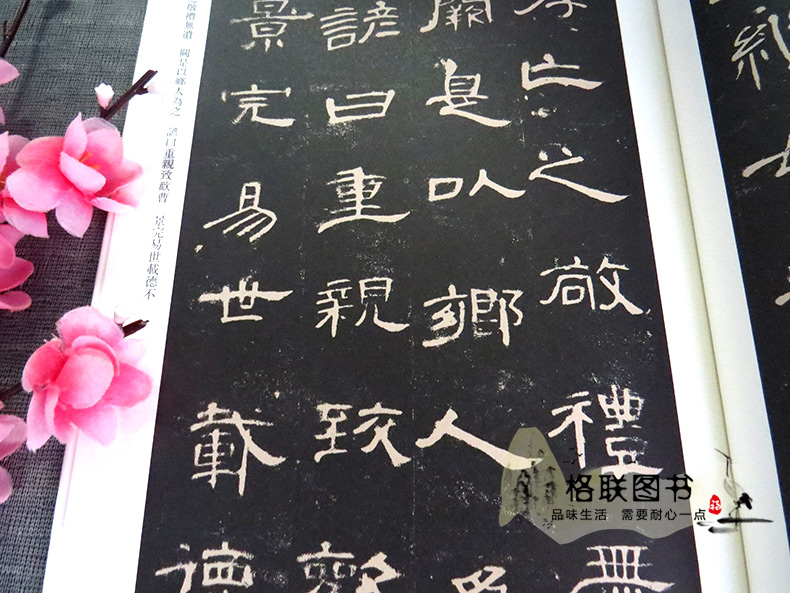 亡之敬禮無
闕是以鄉人為
諺曰重親致歡
景完易世載德
敬禮無遺 闕是以鄉人為之 諺曰重親致歡曹 景完易世載德不
格联图书
品味生活 需要耐心一点